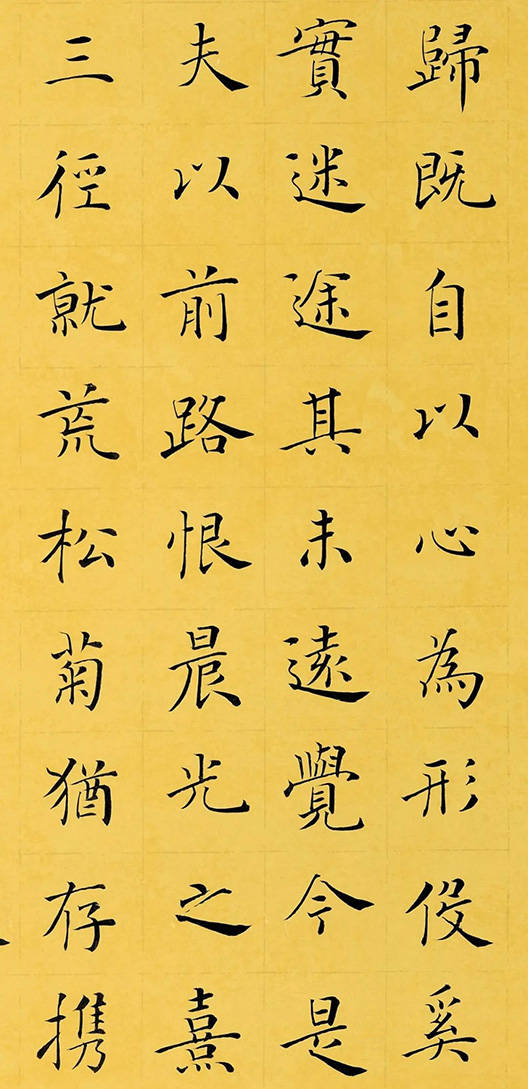 歸既自以心為形伇奚
實迷途其未遠覺今是
夫以前路恨晨光之熹
三徑就荒松菊猶存携